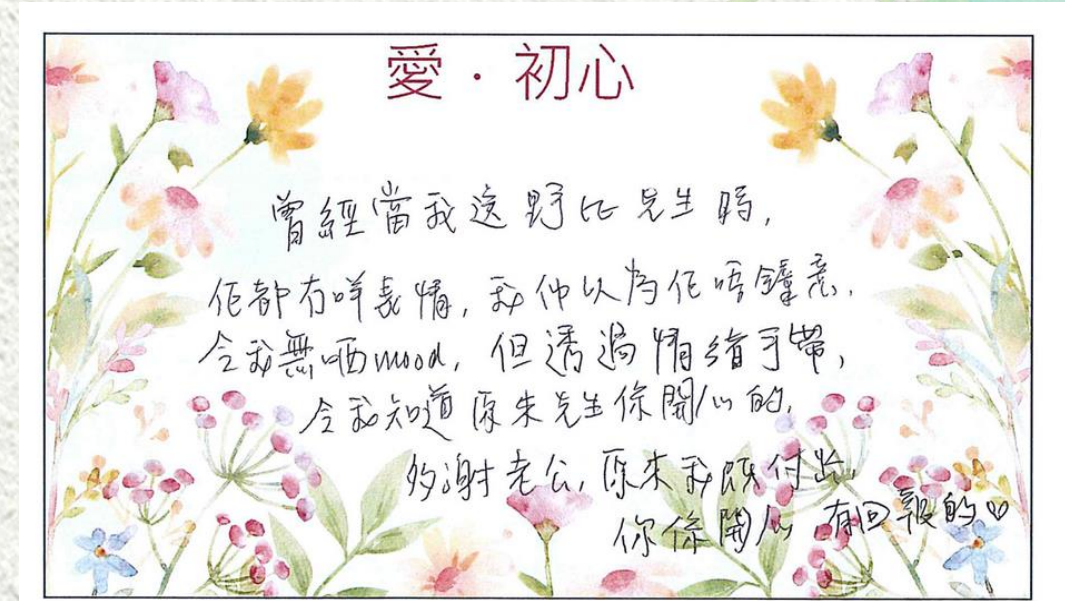 愛·初心
曾經當我送野比先生時,
佢都冇咩表情, 我仲以為佢唔鐘意,
令我無哂mood, 但透過情緒手帶,
令我知道原來先生係開心的,
多謝老公, 原來我既付出,
你係開心 有回報的♡